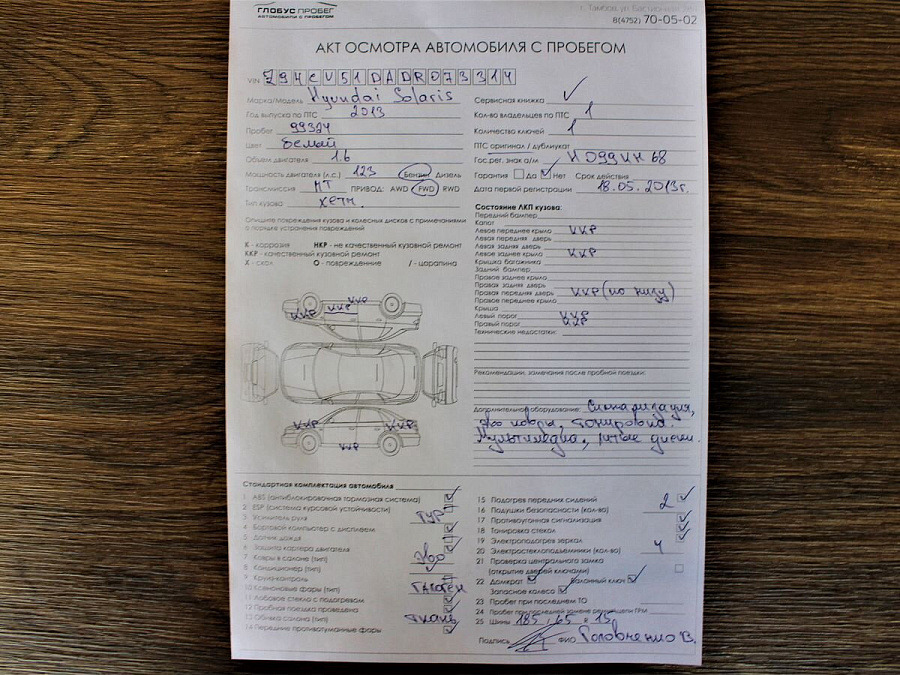 ГЛОБУС ПРОБЕГ
АВТОМОБИЛИ С ПРОБЕГОМ
г. Тамбов, ул.
8(4752) 70-05-02
АКТ ОСМОТРА АВТОМОБИЛЯ С ПРОБЕГОМ
VIN Z94CU51DADR073314
Марка/Модель Hyundai Solaris
Год выпуска по ПТС 2013
Пробег 99324
Цвет белый
Объем двигателя 1.6
Мощность двигателя (л.с.) 123 Бензин Дизель
Трансмиссия МТ ПРИВОД: AWD FWD RWD
Тип кузова хетч.
Сервисная книжка
Кол-во владельцев по ПТС 1
Количество ключей 1
ПТС оригинал / дубликат
Гос.рег. знак а/м Н099КН 68
Гарантия Да Нет Срок действия
Дата первой регистрации 18.05.2013г.
Опишите повреждения кузова и колесных дисков с примечаниями
о порядке устранения повреждений
К - коррозия НКР - не качественный кузовной ремонт
ККР - качественный кузовной ремонт
Х - скол О - повреждение / - царапина
ККР ККР ККР
ККР ККР
ККР
Состояние ЛКП кузова:
Передний бампер
Капот
Левое переднее крыло ККР
Левая передняя дверь
Левая задняя дверь
Левое заднее крыло ККР
Крышка багажника
Задний бампер
Правое заднее крыло
Правая задняя дверь
Правая передняя дверь ККР (по низу)
Правое переднее крыло
Крыша
Левый порог ККР
Правый порог ККР
Технические недостатки:
Рекомендации, замечания после пробной поездки:
Дополнительное оборудование: Сигнализация,
ковры, тонировка.
Мультимедиа, литые диски.
Стандартная комплектация автомобиля
1 ABS (антиблокировочная тормозная система)
2 ESP (система курсовой устойчивости)
3 Усилитель руля ГУР
4 Бортовой компьютер с дисплеем
5 Датчик дождя
6 Защита картера двигателя
7 Ковры в салоне (тип)
8 Кондиционер (тип)
9 Круиз-контроль
10 Ксеноновые фары (тип) Галоген
11 Лобовое стекло с подогревом
12 Пробная поездка проведена
13 Обивка салона (тип) Ткань
14 Передние противотуманные фары
15 Подогрев передних сидений
16 Подушки безопасности (кол-во) 2
17 Противоугонная сигнализация
18 Тонировка стекол
19 Электроподогрев зеркал
20 Электростеклоподъемники (кол-во) 4
21 Проверка центрального замка
(открытие дверей ключами)
22 Домкрат Балонный ключ
Запасное колесо
23 Пробег при последнем ТО
24 Пробег при последней замене ремня/цепи ГРМ
25 Шины 185/65 R 15
Подпись ФИО Головченко В.